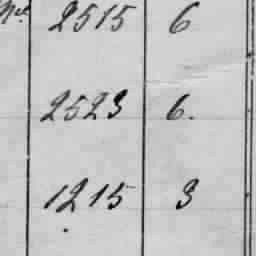 No. 2515 6
2523 6.
1215 3